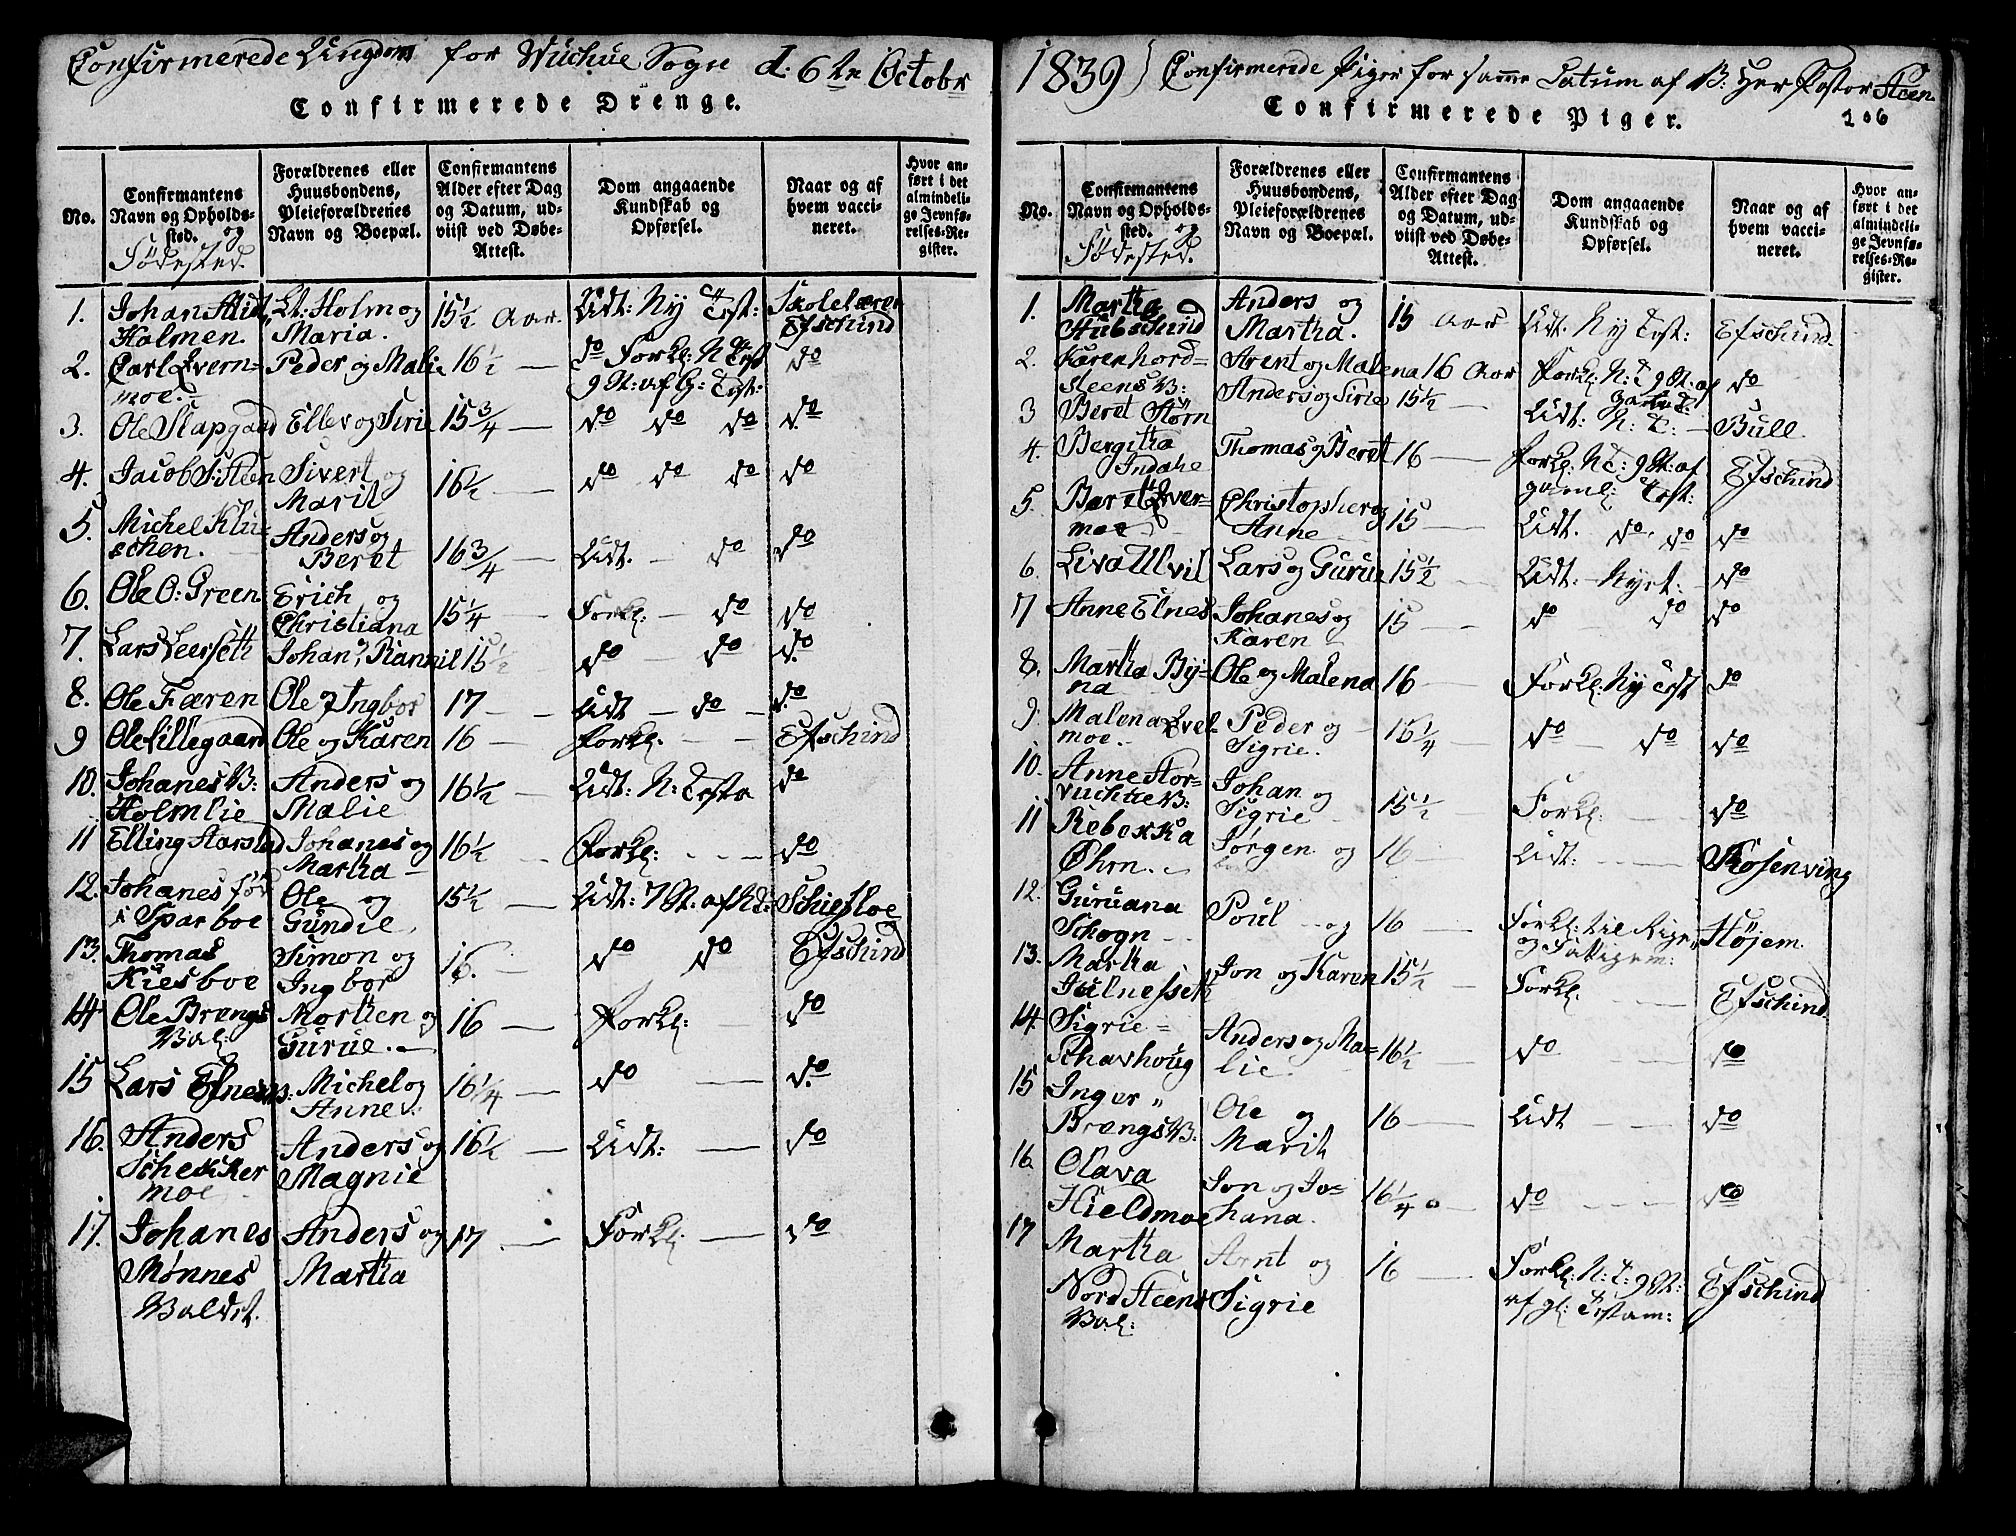 Confirmerede Ungdom for Wuchue Sogn d. 6te Octobr
Confirmerede Drenge.
No.
Confirmantens Navn og Opholdssted. og Fødested.
Forældrenes eller Huusbondens, Pleieforældrenes Navn og Boepæl.
Confirmantens Alder efter Dag og Datum, udviist ved Døbe-Attest.
Dom angaaende Kundskab og Opførsel.
Naar og af hvem vaccineret.
Hvor anført i det almindelige Jevnførelses-Register.
1. Johan Holmen. Lt: Holm og Maria. 15½ Aar. Udt: Ny Test: Skolelærer Efschind
2. Carl Evernmoe. Peder og Malie 16½ — do Forkl: N Test 9 St: af G: Test: do
3. Ole Slapgaard Ellev og Sirie 15¾ — do do do do
4. Jacob S: Steen Sivert og Marit 16½ — do do do do
5. Michel Kluschen. Anders og Beret 16¾ Udt. — do do
6. Ole O: Green. Erich og Christiana 15¼ — Forkl: — do do
7. Lars Leerseth Johan, Rannil 15½ do — do do
8. Ole Færen Ole og Ingbor 17 — Udt — do — do
9 Ole Lillegaard Ole og Karen 16 — Forkl: — Efschind
10. Johanes B: Holmlie Anders og Malie 16½ — Udt: N: Testa do
11 Elling Starstad Johanes og Martha 16½ — Forkl: — do
12. Johanes fød i Sparboe Ole og Gundie 15½ — Udt: 7 St: af Schiefloe
13. Thomas Kiesboe Simon og Ingbor 16. — do do Efschind
14 Ole Brengs Val: Morten og Gurue. — 16 — Forkl: do
15 Lars Efnes Michel og Anne 16¼ — do — do
16. Anders Schekkermoe Anders og Magnie 16½ — Udt: — do
17. Johanes Mønnes Valdet. Anders og Martha 17 — Forkl: — do
1839) Confirmerede Piger for samme Datum af Hr: Her Pastor Steen
Confirmerede Piger.
106
No.
Confirmantens Navn og Opholdssted. og Fødested.
Forældrenes eller Huusbondens, Pleieforældrenes Navn og Boepæl.
Confirmantens Alder efter Dag og Datum, udviist ved Døbe-Attest.
Dom angaaende Kundskab og Opførsel.
Naar og af hvem vaccineret.
Hvor anført i det almindelige Jevnførelses-Register.
1. Martha Stubschind Anders og Martha. 15 Aar Udt. Ny Test: Efschind.
2. Karen Nordsteens V: Arent og Malena 16 Aar Forkl: N: T 9 St: af Gamle T: do
3 Beret Størn Anders og Sirie 15½ — Udt: N: T: — Bull
4. Bergitha Indahe Thomas og Beret 16 — Forkl: N T: 9 St: af gaml: Test: Efschind
5. Beret Evermoe Christopher og Anne 15 — Udt. do do do
6. Liva Ulvil Lars og Gurue 15½ Udt: Nyt: do
7 Anne Elnes Johanes og Karen 15 — do do do
8. Martha Byna Ole og Malena 16 — Forkl: Ny Test do
9. Malena Evelmoe. Peder og Sigrie. 15¼ — do — do do
10. Anne Storvuchue V: Johan og Sigrie 15½ — Forkl: do
11 Rebekka Ohrn. Jørgen og 16 — Udt: — Rosenving
12. Guruana Schogn Poul og 16 — Forkl: til Rign: og Fattigem: Højem
13. Martha Julnesseth Jon og Karen 15½ — Forkl. — Efschind
14. Sigrie Schavhoug Anders og Malie 16½ do do
15 Inger Brengs V: Ole og Marit 16 — Udt — do
16. Olava Hieldmoe Jon og Johana. 16¼ do — do
17 Martha Nord Steens Val: Arnt og Sigrie 16 — Forkl: N: T: 9 St: af gl: Testam: Efschind